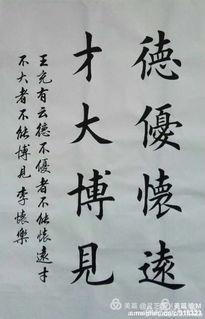 德優懷遠
才大博見
王充有云德不優者不能懷遠才
不大者不能博見 李懷樂
美篇
美篇